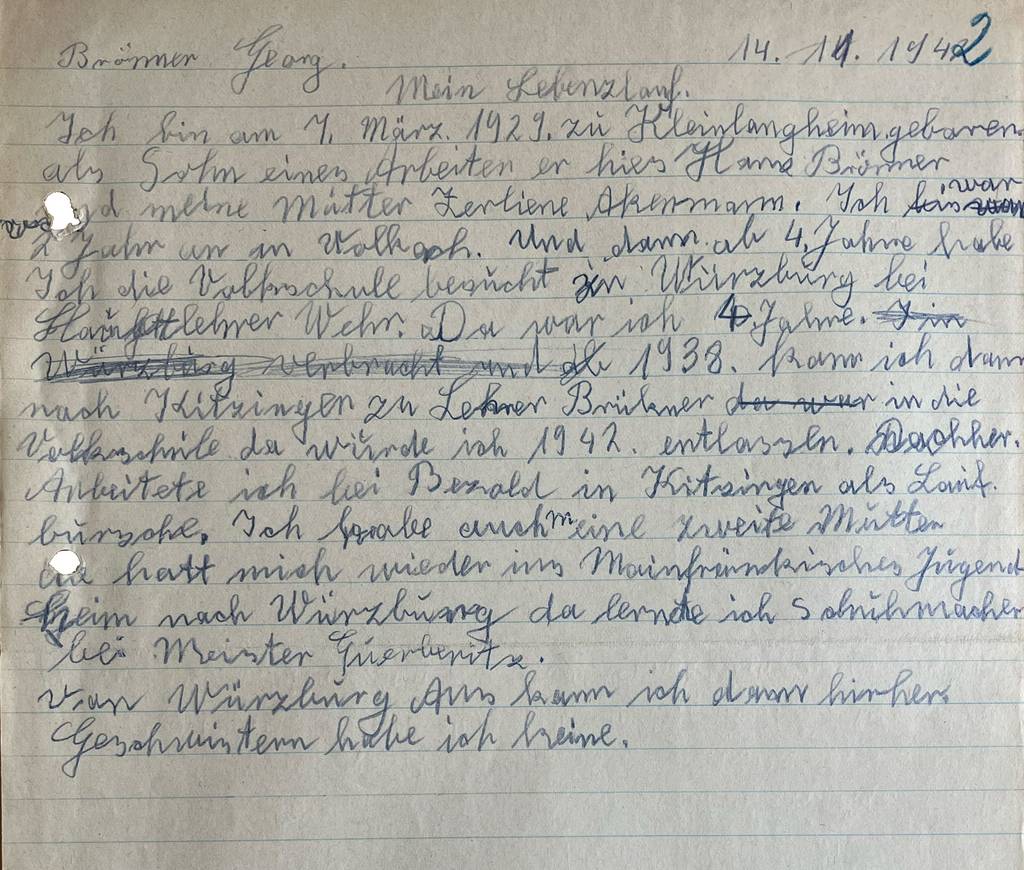 Brönner Georg. 14. 11. 1942
Mein Lebenzlauf.
Ich bin am 7. März. 1929. zu Kleinlangheim geboren.
als Sohn eines Arbeiten er hies Hans Brönner
und meine Mutter Zerliene Akermann. Ich war
2 Jahr in Volkach. Und dann ab 4. Jahre habe
Ich die Volkschule besucht in Würzburg bei
Hauptlehrer Wehr. Da war ich 4 Jahre. I in
Würzburg verbracht und ab 1938. kam ich dann
nach Kitzingen zu Lehrer Brükner da war in die
Volkschule da würde ich 1942. entlassen. Nachher.
Arbeitete ich bei Bezold in Kitzingen als Lauf.
bursche. Ich habe auch meine zweite Mutter
die hatt mich wieder ins Mainfränkisches Jugend
heim nach Würzburg da lernte ich Schuhmacher
bei Meister
Von Würzburg Aus kam ich dann hirher.
Geschwistern habe ich keine.